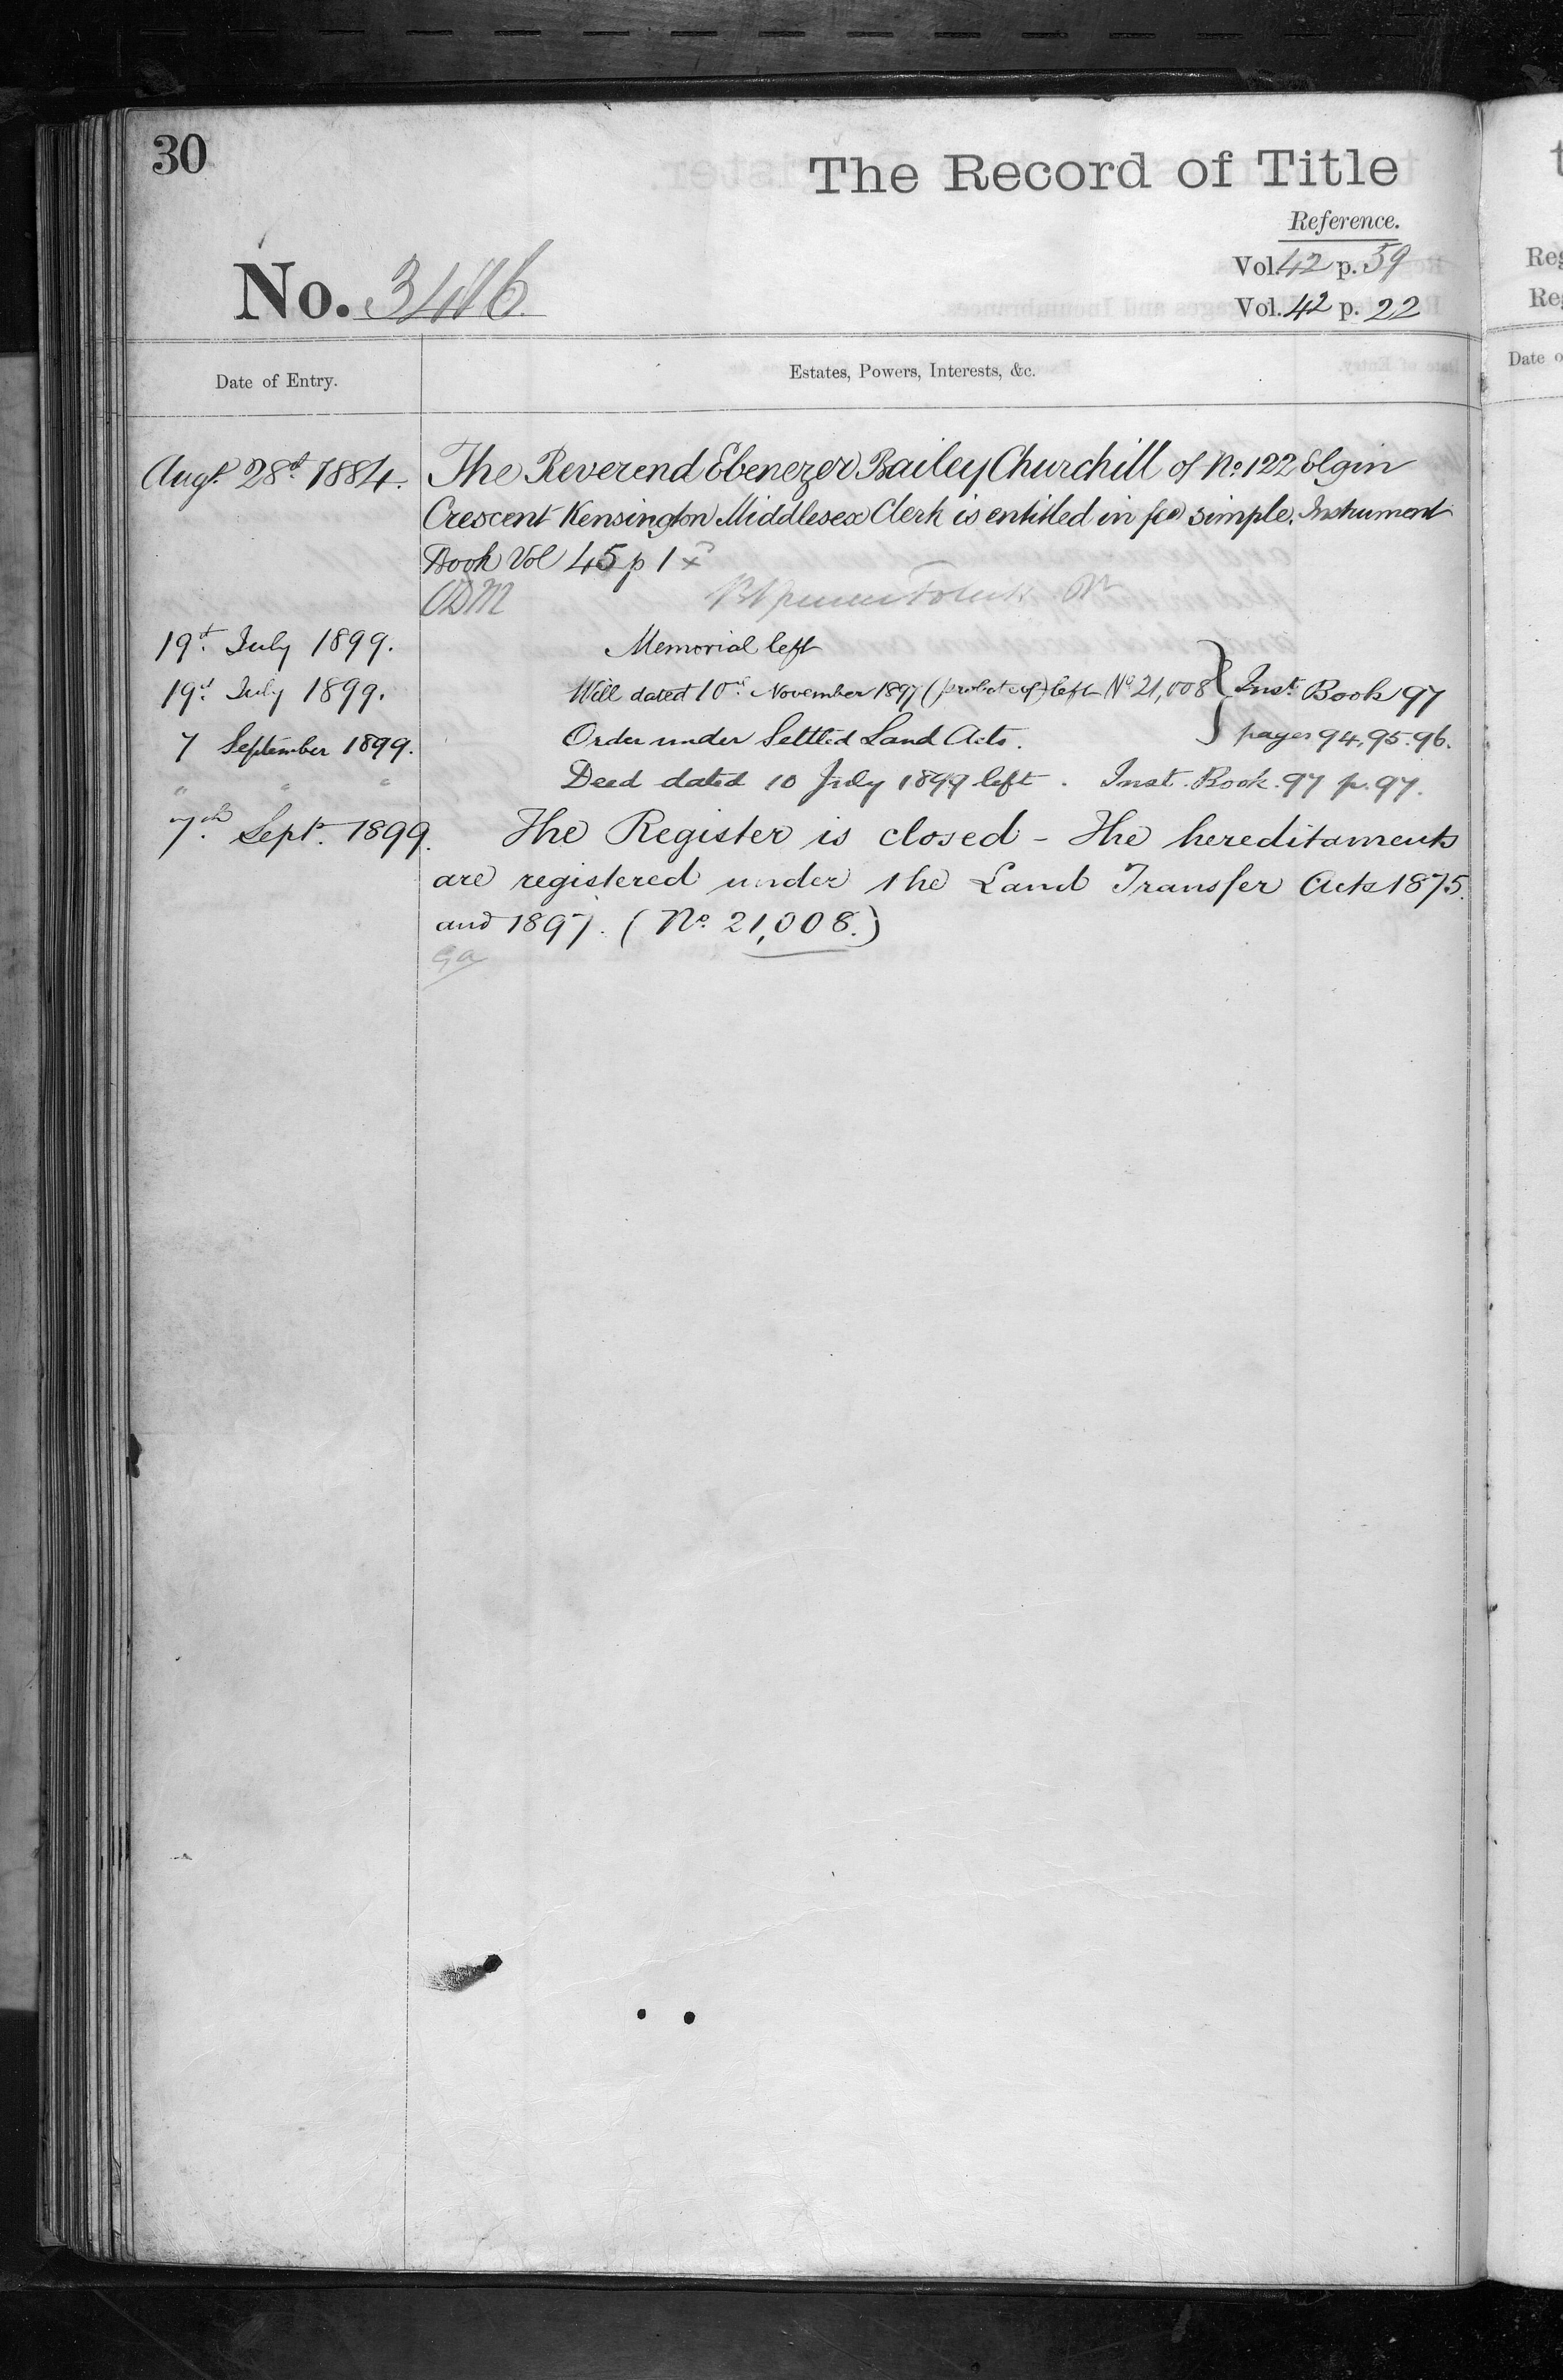 30
The Record of Title
Reference.
Vol. 42 p. 59
No. 3416
Vol. 42 p. 22
Date of Entry.
Estates, Powers, Interests, &c.
Augt. 28th 1884. The Reverend Ebenezer Bailey Churchill of No. 122 Elgin
Crescent Kensington Middlesex Clerk is entitled in fee simple. Instrument
Book Vol 45 p 1
19th July 1899. Memorial left
19th July 1899. Will dated 10th November 1897 (probate of) left No 21,008 } Inst. Book 97
7 September 1899. Order under Settled Land Acts. pages 94, 95. 96.
" " " Deed dated 10 July 1899 left. Inst. Book. 97 p. 97.
7th Sept. 1899. The Register is closed - The hereditaments
are registered under the Land Transfer Acts 1875.
and 1897. (No. 21,008.)
Reg
Reg
Date o